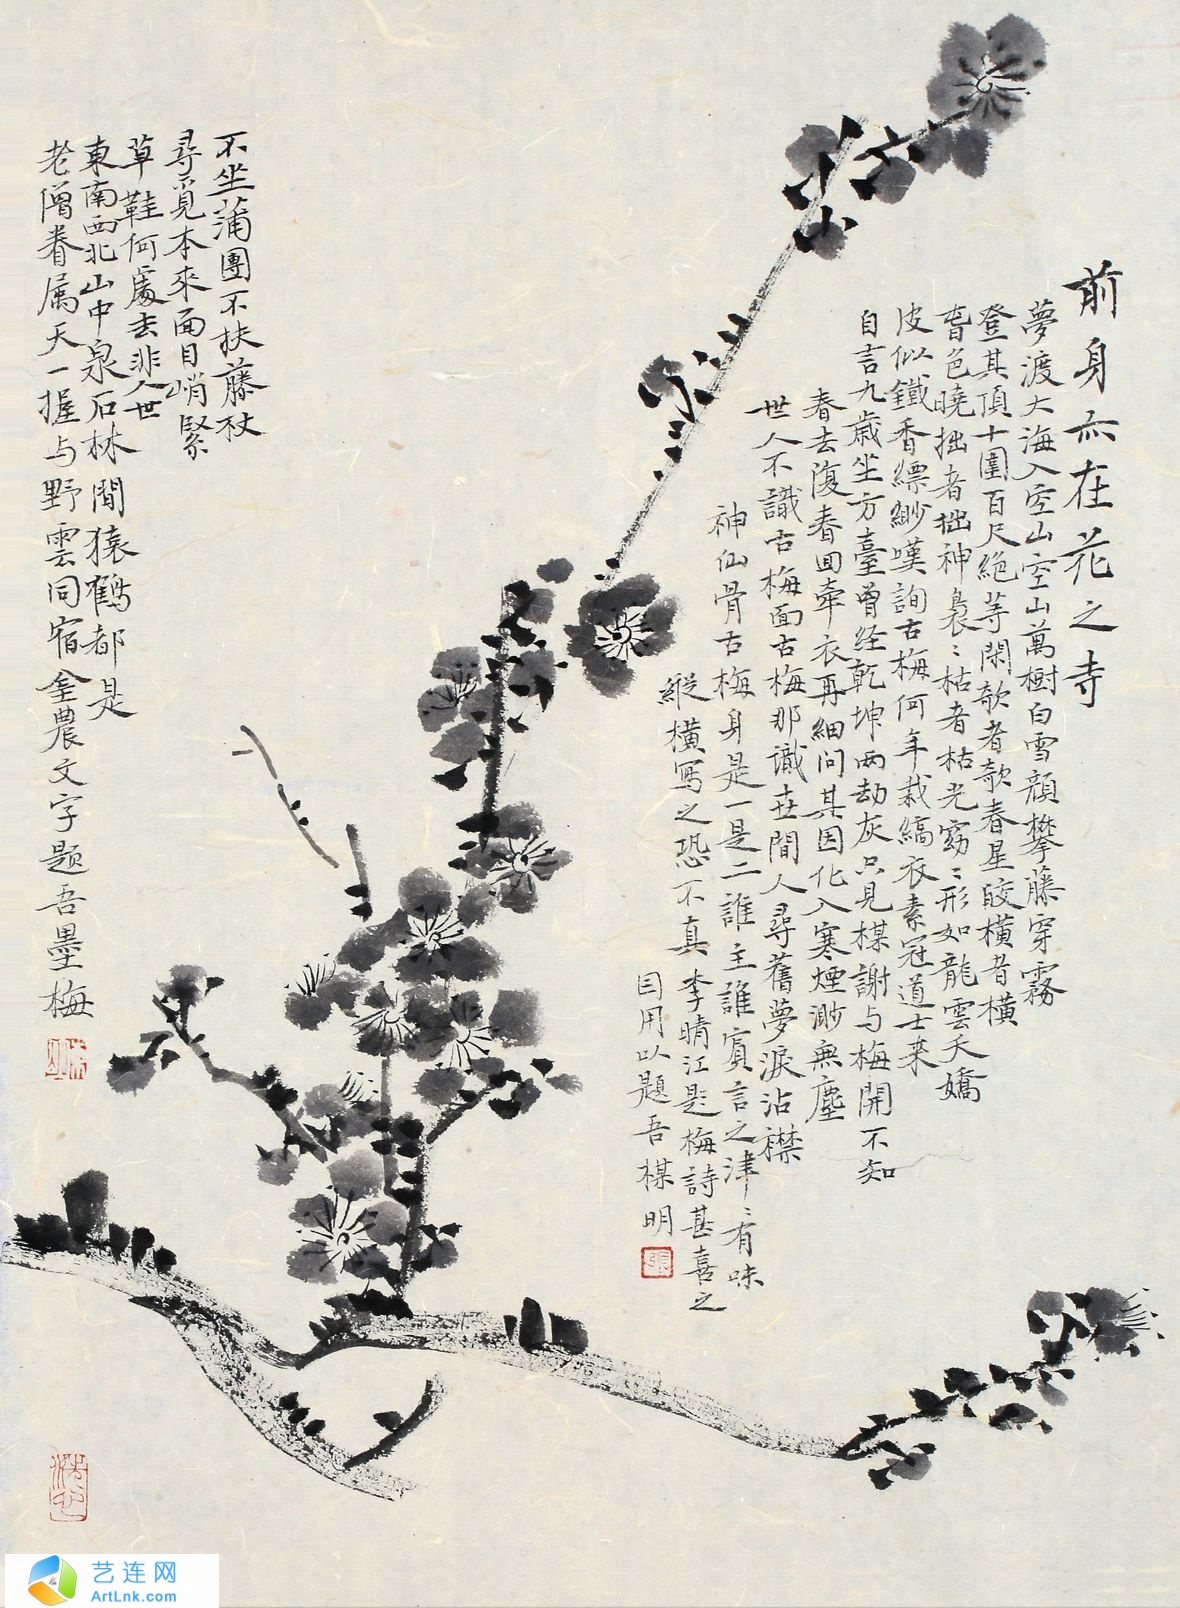 前身亦在花之寺
夢渡大海入空山空山萬樹白雪顔攀藤穿霧
登其頂十圍百尺絶等閑欹者欹春星皎横者横
春色曉拙者拙神裊〻枯者枯光窈〻形如龍雲夭嬌
皮似鐵香縹緲嘆詢古梅何年栽縞衣素冠道士来
自言九歳坐方臺曾经乾坤两劫灰只見楳謝与梅開不知
春去復春回牽衣再細问其因化入寒煙渺無塵
世人不識古梅面古梅那識世間人尋舊夢淚沾襟
神仙骨古梅身是一是二誰主誰賓言之津〻有味
縱横寫之恐不真李晴江題梅詩甚喜之
因用以題吾楳明
張
不坐蒲團不扶藤杖
尋覓本來面目峭緊
草鞋何處去非人世
東南西北山中泉石林間猿鶴都是
老僧眷属天一握与野雲同宿金農文字题吾墨梅
艺连网
ArtLnk.com